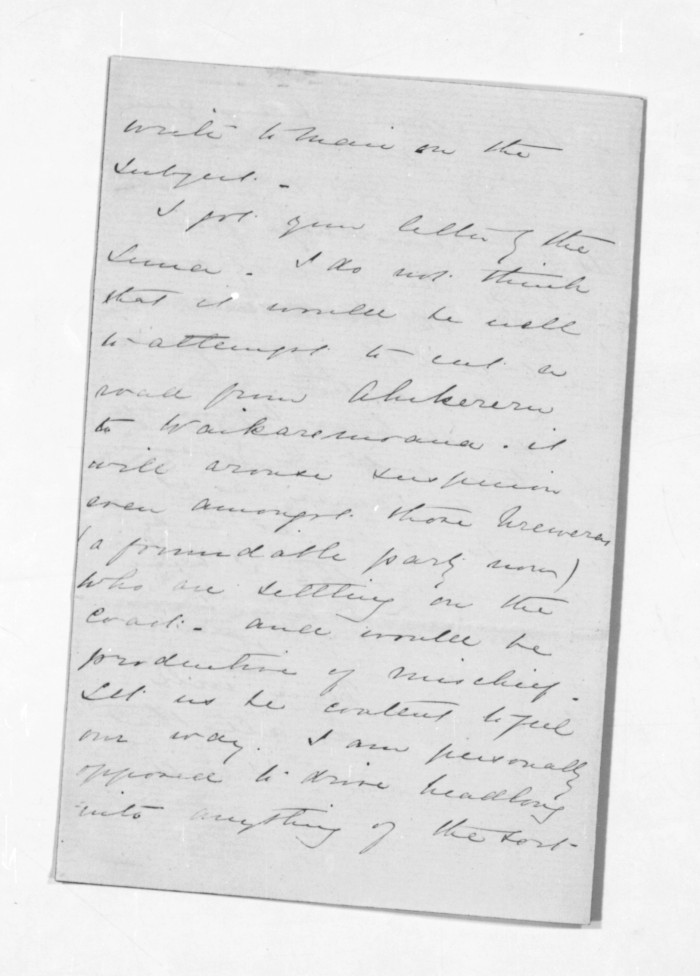 write to Mair on the
subject. -
I got your letter by the
Luna. I do not think
that it would be well
to attempt to cut a
road from Ahikereru
to Waikaremoana. it
will arouse suspicion
even amongst those Urewera
(a formidable party now)
who are settling on the
coast - and would be
productive of mischief -
Let us be content to feel
our way. I am personally
opposed to drive headlong
into anything of the sort -